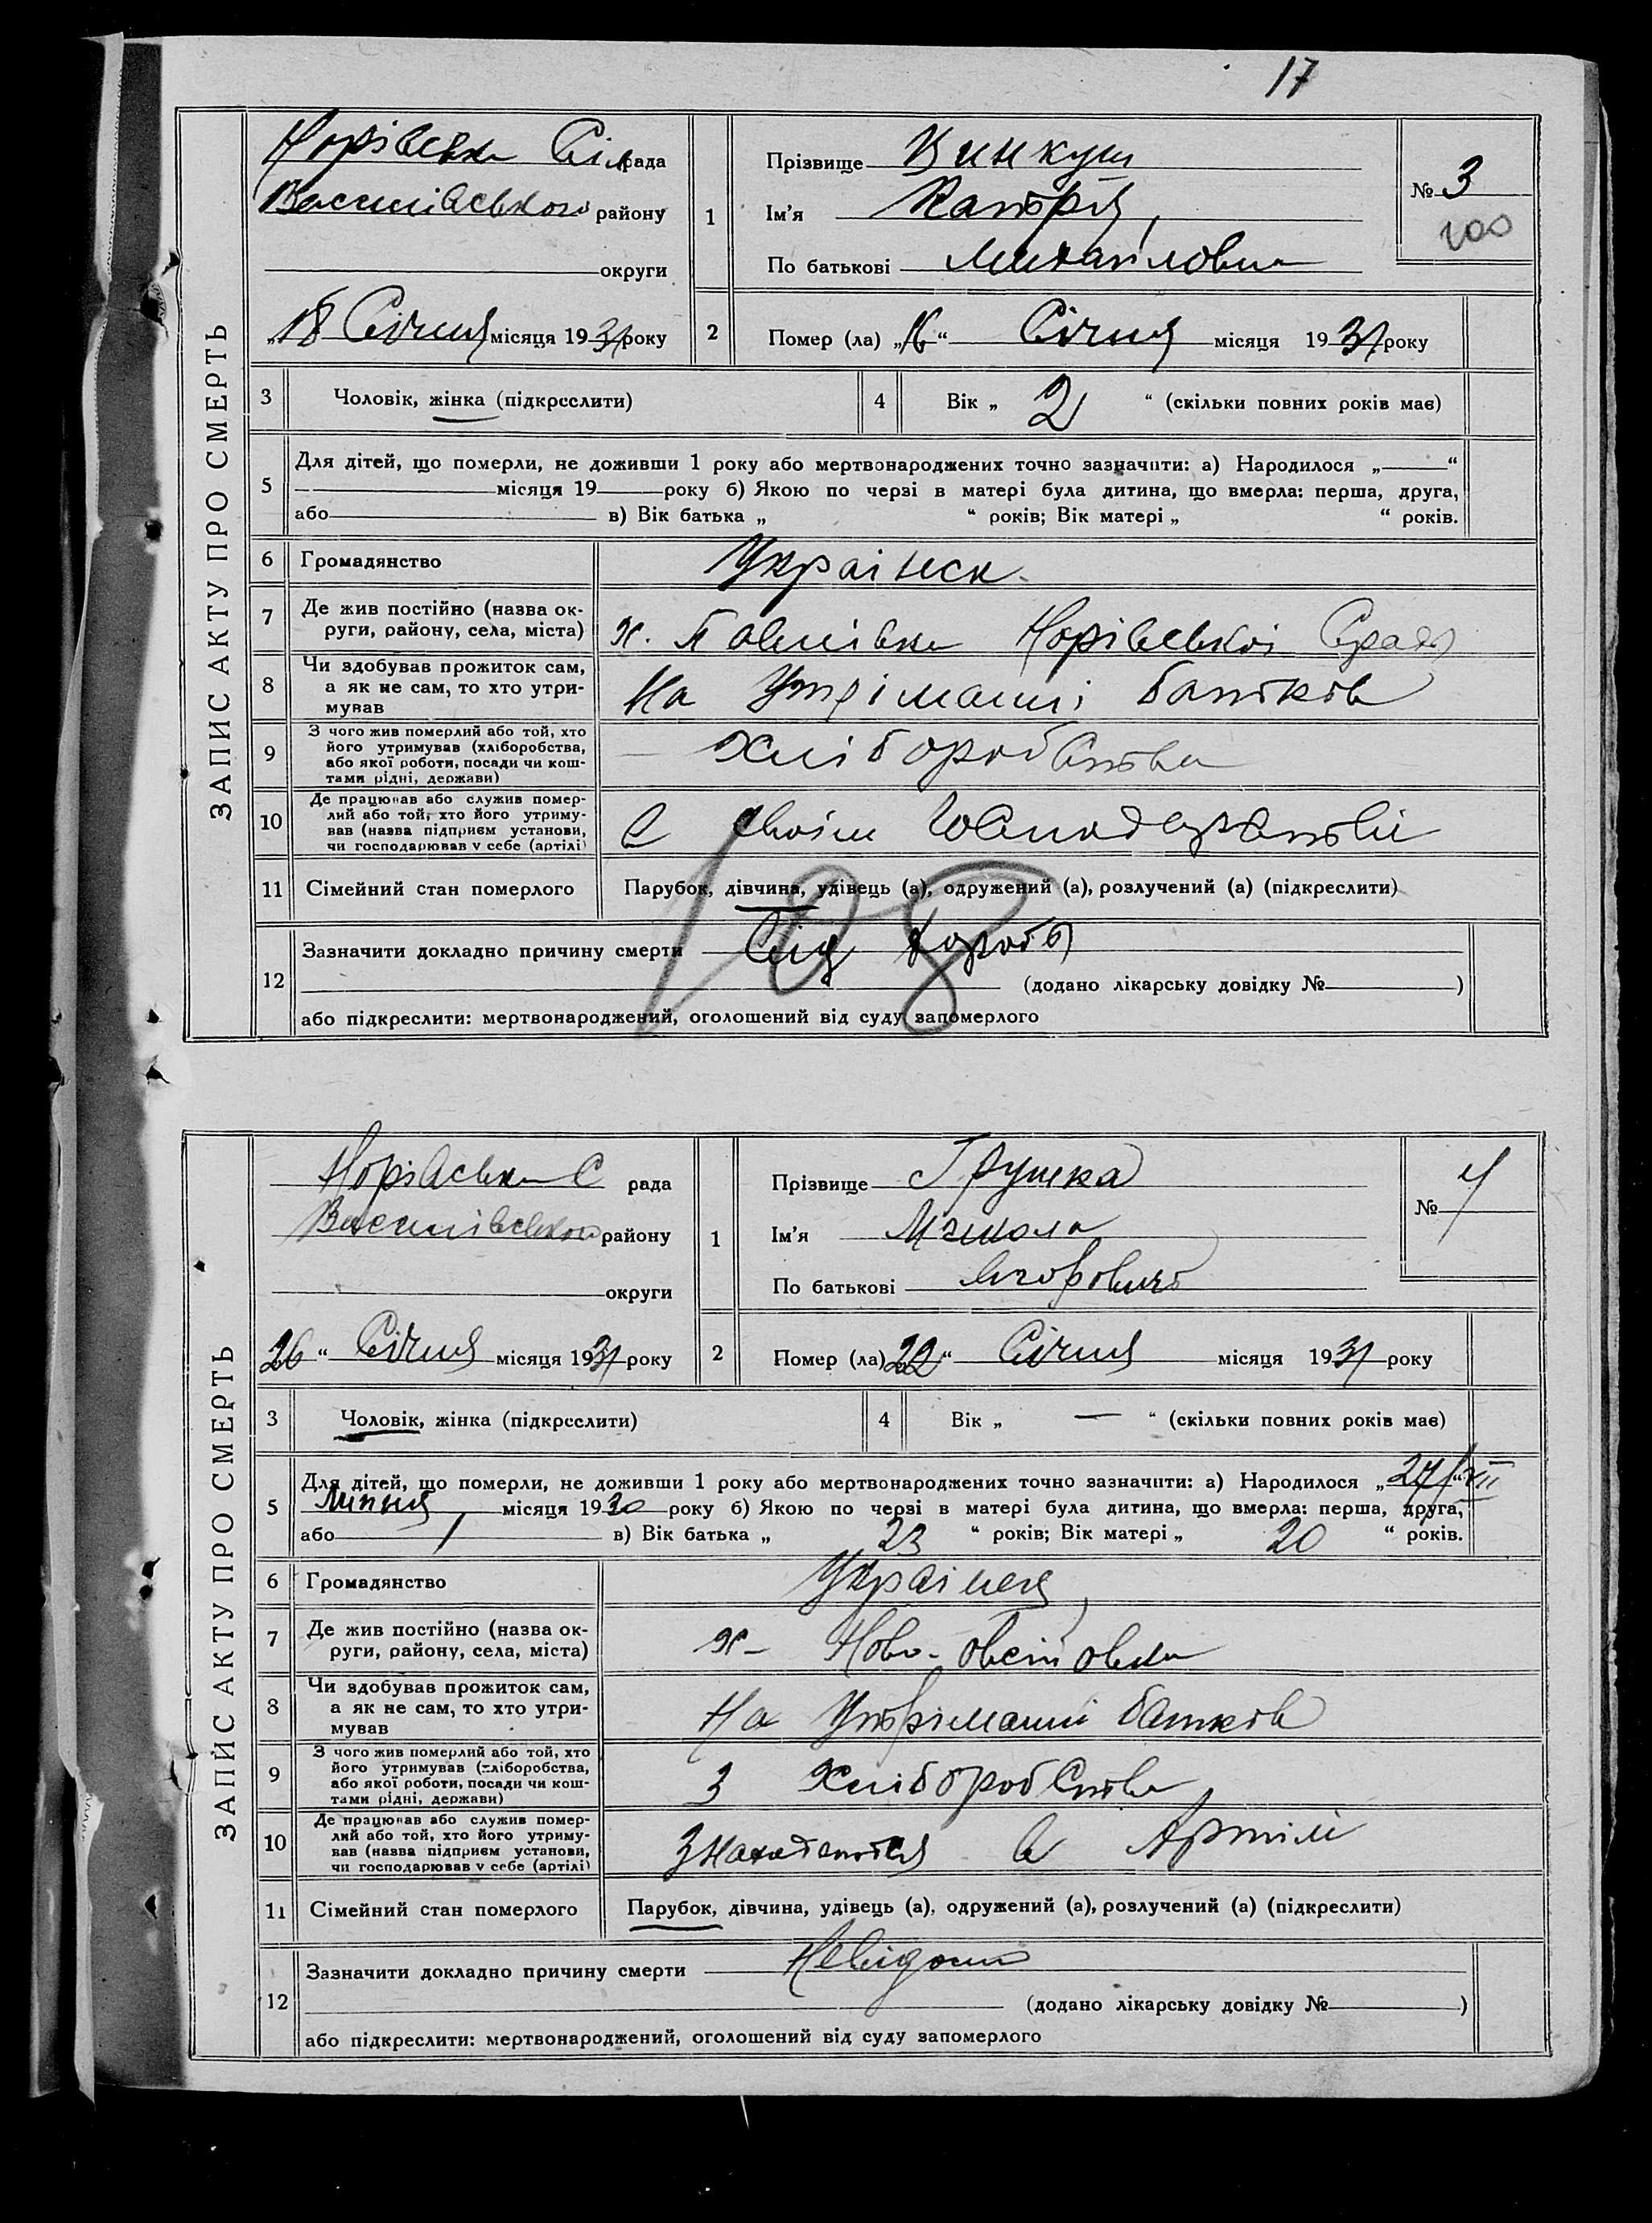 17
ЗАПИС АКТУ ПРО СМЕРТЬ
Норівська Сіл рада
Василівського району
округи
„18 Січня місяця 1931 року
1
Прізвище
Ім'я
По батькові Михайловна
№ 3
100
2
Помер (ла) „16“ Січня місяця 1931 року
3
Чоловік, жінка (підкреслити)
4
Вік „ 2 “ (скільки повних років має)
5
Для дітей, що померли, не доживши 1 року або мертвонароджених точно зазначити: а) Народилося „—“
— місяця 19 — року б) Якою по черзі в матері була дитина, що вмерла: перша, друга,
або в) Вік батька „ “ років; Вік матері „ “ років.
6
Громадянство
Українск.
7
Де жив постійно (назва ок-
руги, району, села, міста)
х. Норівської
8
Чи здобував прожиток сам,
а як не сам, то хто утри-
мував
На Утріманні батьків
9
З чого жив померлий або той, хто
його утримував (хліборобства,
або якої роботи, посади чи кош-
тами рідні, держави)
— Хліборобства
10
Де працював або служив помер-
лий або той, хто його утриму-
вав (назва підприєм установи,
чи господарював у себе (артілі)
В своїм
11
Сімейний стан померлого
Парубок, дівчина, удівець (а), одружений (а), розлучений (а) (підкреслити)
108
12
Зазначити докладно причину смерти Від
(додано лікарську довідку № )
або підкреслити: мертвонароджений, оголошений від суду запомерлого
ЗАПИС АКТУ ПРО СМЕРТЬ
Норівська С рада
Василівського району
округи
26 “ Січня місяця 1931 року
1
Прізвище Грушка
Ім'я Мікола
По батькові
№ 4
2
Помер (ла) 22 “ Січня місяця 1931 року
3
Чоловік, жінка (підкреслити)
4
Вік „ — “ (скільки повних років має)
5
Для дітей, що померли, не доживши 1 року або мертвонароджених точно зазначити: а) Народилося „ 27/VII
Липня місяця 1930 року б) Якою по черзі в матері була дитина, що вмерла: перша, друга,
або 1 в) Вік батька „ 23 “ років; Вік матері „ 20 “ років.
6
Громадянство
7
Де жив постійно (назва ок-
руги, району, села, міста)
х-
8
Чи здобував прожиток сам,
а як не сам, то хто утри-
мував
На Утьріманні батьків
9
З чого жив померлий або той, хто
його утримував (хліборобства,
або якої роботи, посади чи кош-
тами рідні, держави)
З Хліборобства
10
Де працював або служив помер-
лий або той, хто його утриму-
вав (назва підприєм установи,
чи господарював у себе (артілі)
в Артілі
11
Сімейний стан померлого
Парубок, дівчина, удівець (а), одружений (а), розлучений (а) (підкреслити)
12
Зазначити докладно причину смерти Невидома
(додано лікарську довідку № )
або підкреслити: мертвонароджений, оголошений від суду запомерлого